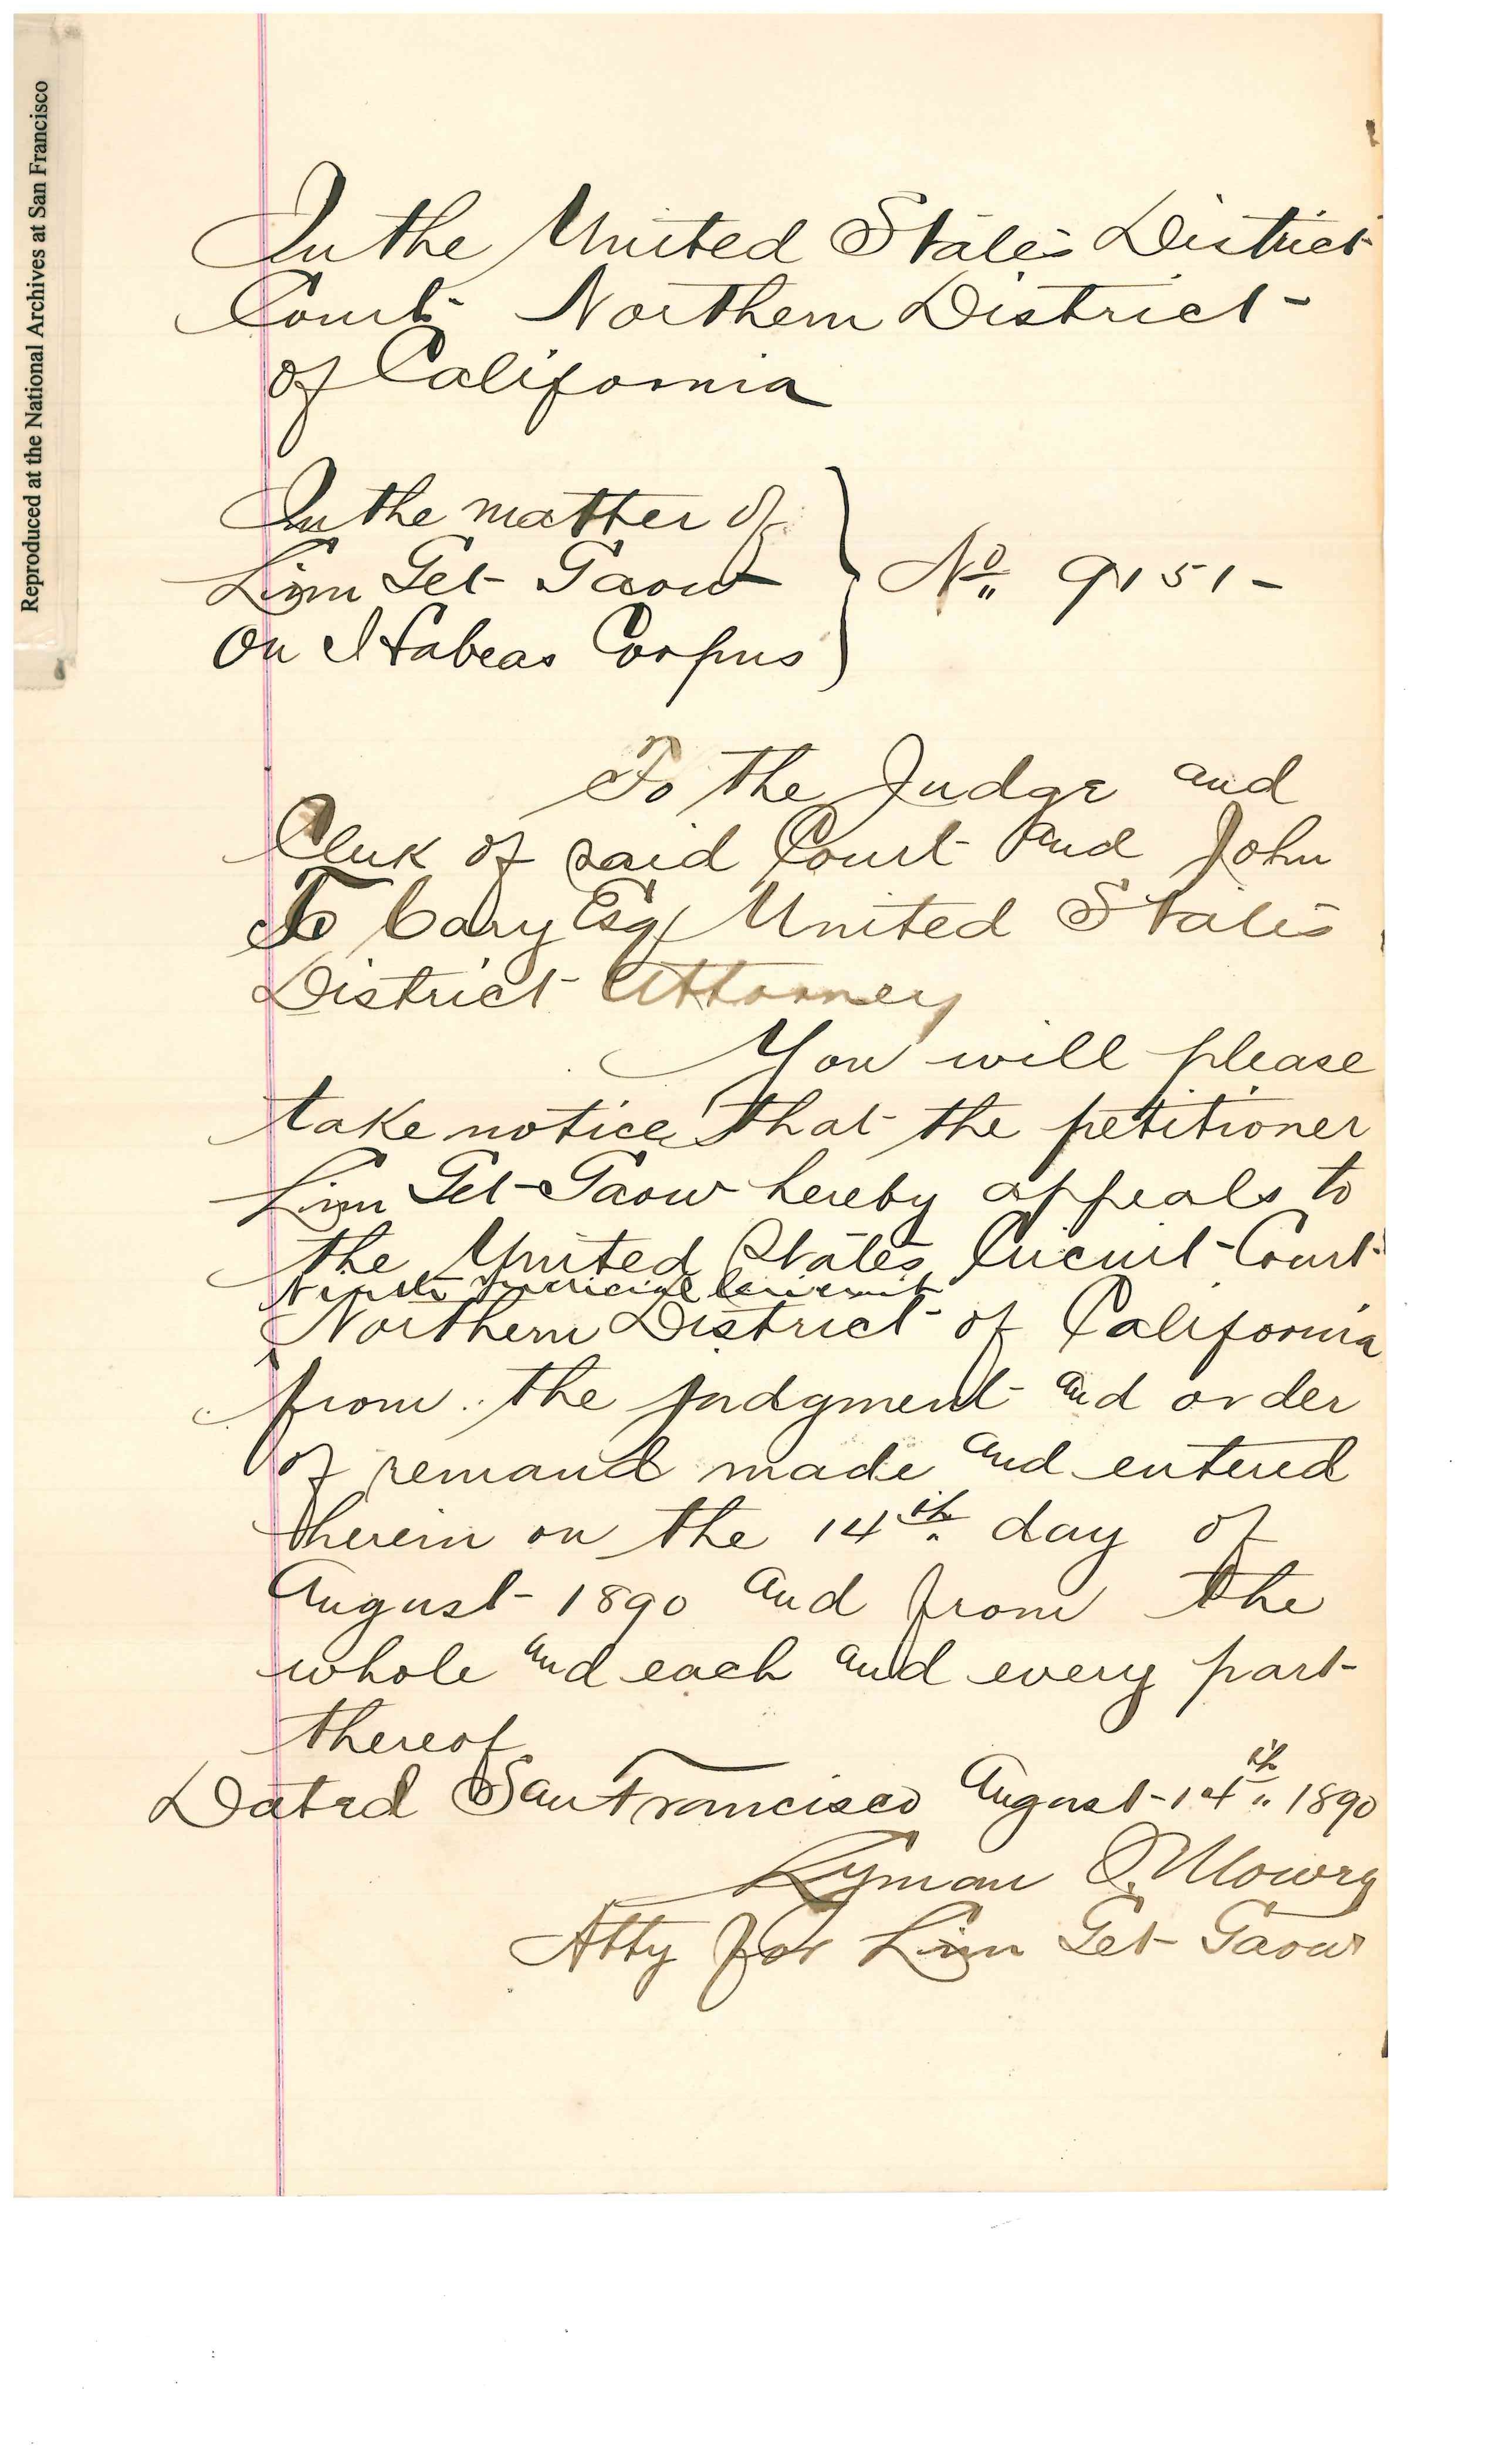 Reproduced at the National Archives at San Francisco
In the United States District
Court Northern District
of California
In the matter of
Lim Get Gaow
On Habeas Corpus
No 9151
To the Judge and
Clerk of said Court and John
T Cary Esq United States
District Attorney
You will please
take notice that the petitioner
Lim Get Gaow hereby appeals to
the United States Circuit Court
Ninth Judicial Circuit
Northern District of California
from the judgment and order
of remand made and entered
therein on the 14th day of
August 1890 and from the
whole and each and every part
thereof
Dated San Francisco August 14th 1890
Lyman I. Mowry
Atty for Lim Get Gaow